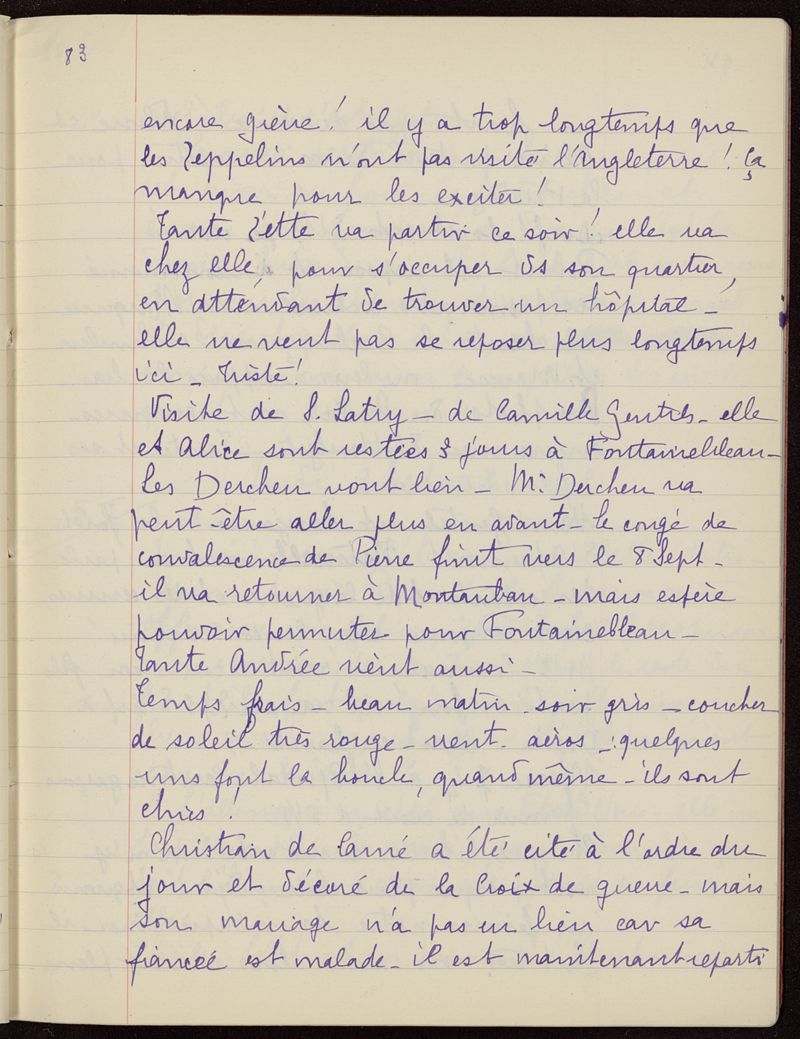 83
encore grève! il y a trop longtemps que
les Zeppelins n'ont pas visité l'Angleterre! Ça
manque pour les exciter!
Tante Zette va partir ce soir! elle va
chez elle, pour s'occuper ds son quartier,
en attendant de trouver un hôpital –
elle ne veut pas se reposer plus longtemps
ici – Triste!
Visite de S. Latry – de Camille Gentils – elle
et Alice sont restées 3 jours à Fontainebleau –
Les Dercheu vont bien – Mr Dercheu va
peut-être aller plus en avant – le congé de
convalescence de Pierre finit vers le 8 Sept –
il va retourner à Montauban – mais espère
pouvoir permuter pour Fontainebleau –
Tante Andrée vient aussi –
Temps frais – beau matin – soir gris – coucher
de soleil très rouge – vent – aéros – quelques
uns font la boucle, quand même – ils sont
chics!
Christian de Carné a été cité à l'ordre du
jour et décoré de la Croix de guerre – mais
son mariage n'a pas eu lieu car sa
fiancée est malade – il est maintenant reparti